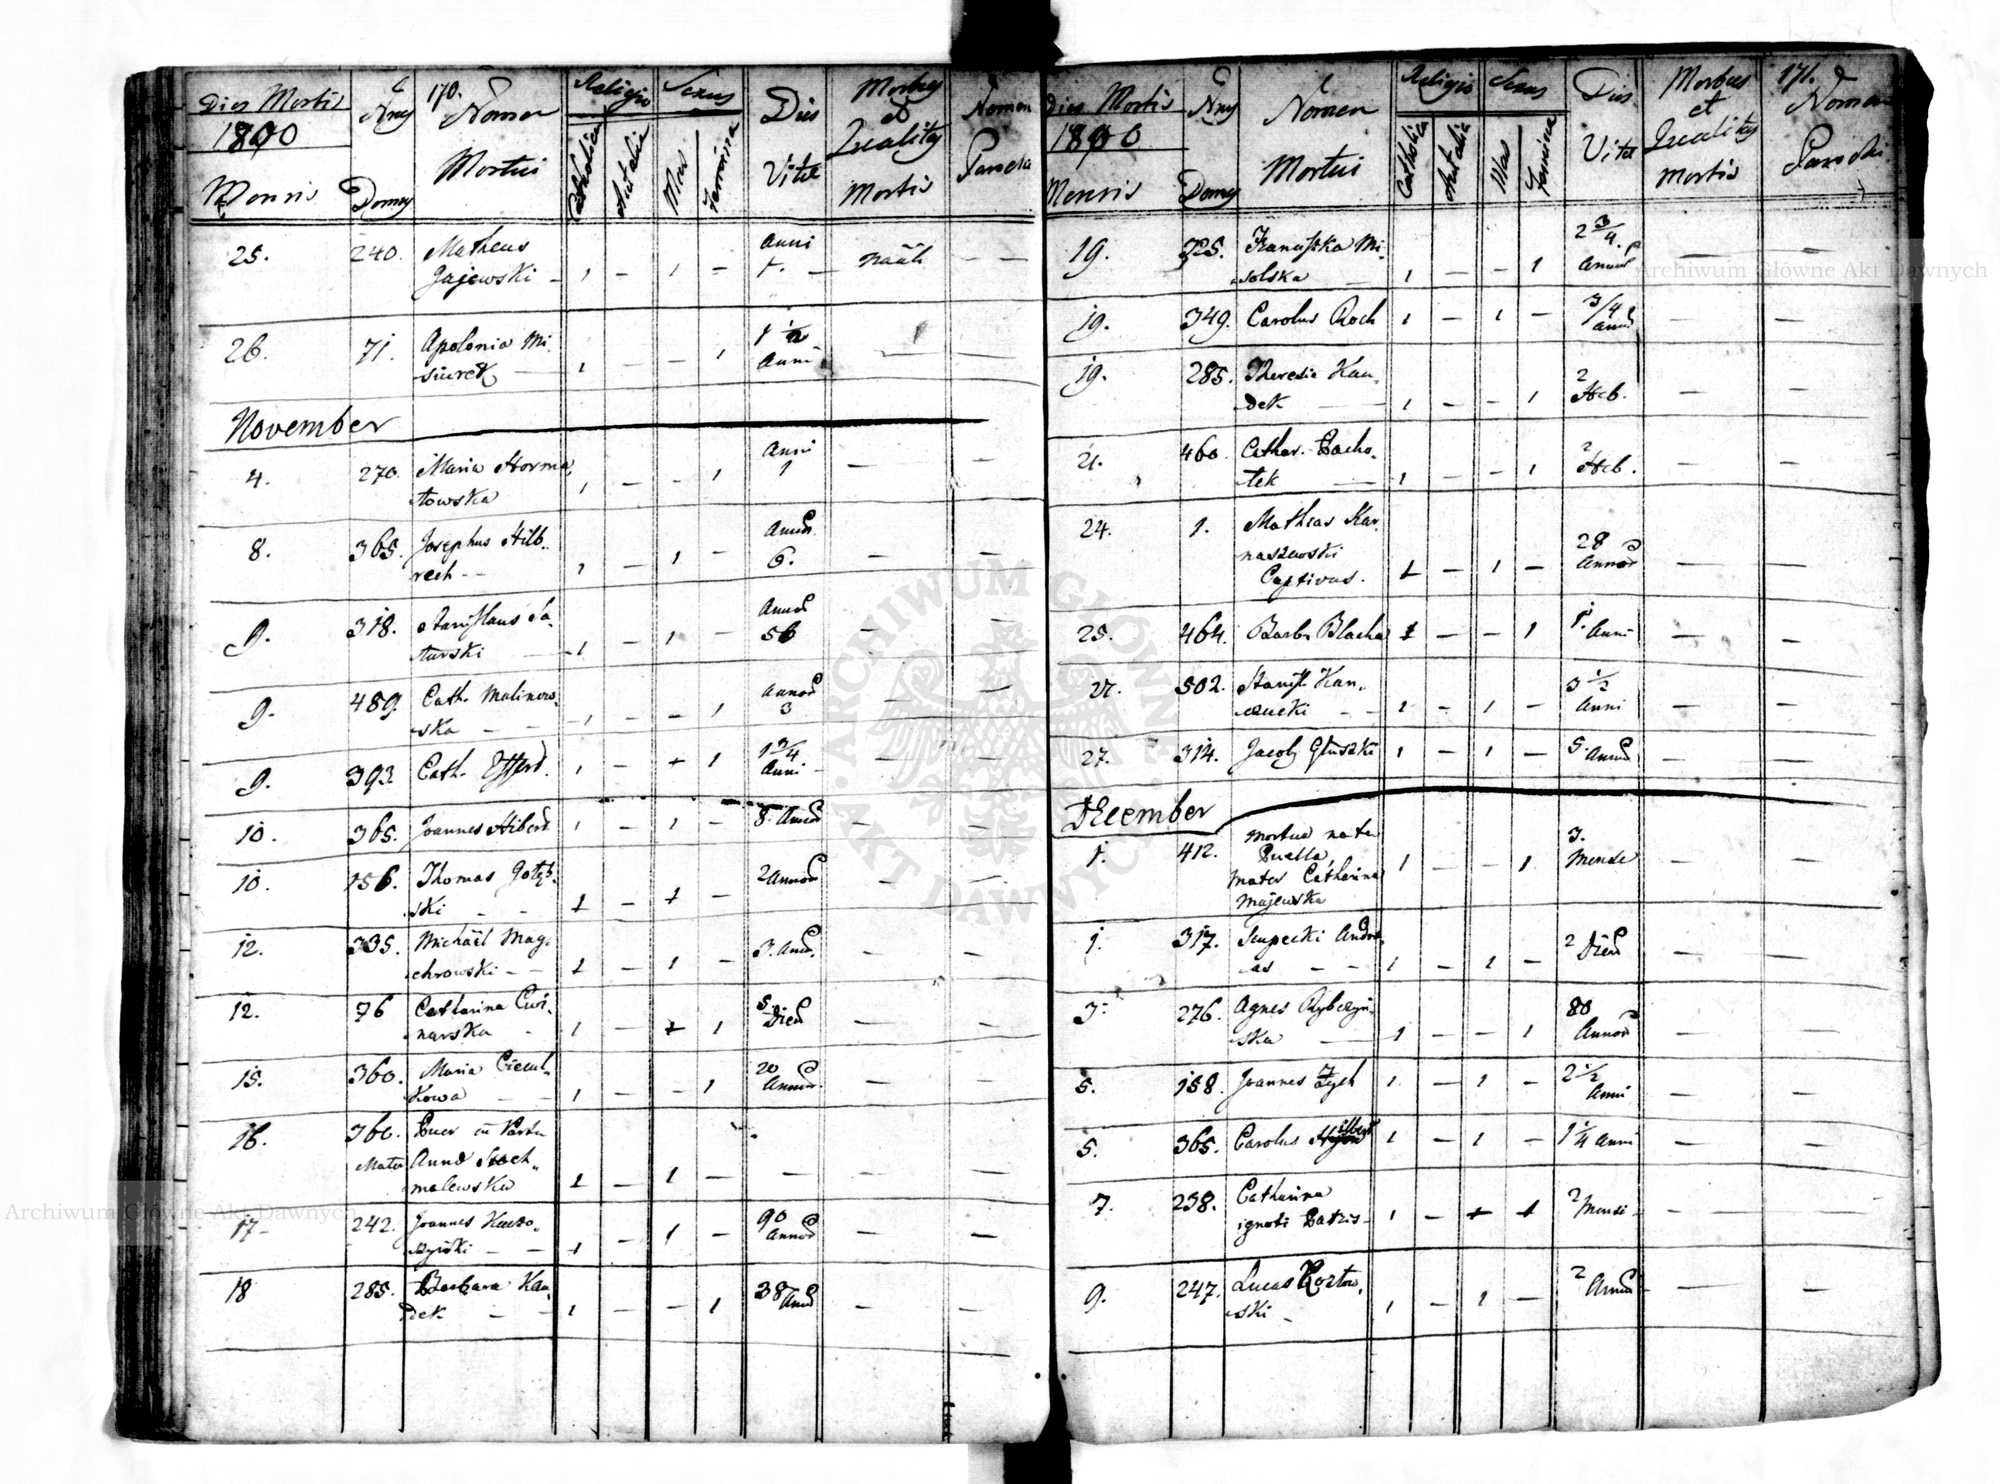 170.
Dies Mortis
1800
Mensis
Nrus
Domus
Nomen
Mortui
Religio
Catholica
Autalia
Sexus
Mas
Femina
Dies
Vitæ
Morbus
et
Qualitas
Mortis
Nomen
Parochi
25. 240. Matheus Anni
Gajewski - 1 - 1 -
26. 71. Apolonia Mi- 1 1/2
siurek 1 - - 1 Anni
November
4. 270. Maria Horma, Anni
towska 1 - - 1 1 -
8. 365. Josephus Hilb- Annus
rech - - 1 - 1 - 6. - -
9. 318. Stanislaus Sa-
turski - 1 - 1 - 56 - -
9. 489. Cath. Malinow-
ska - 1 - - 1 3 - -
9. 393 Cath. 1 - + 1 1 3/4
Anni - -
10. 365. Joannes Hibert 1 - 1 - 8. - -
10. 156. Thomas Gołęb-
ski - - 1 - + - 2 - -
12. 335. Michaël Mag-
chrowski - - 1 - 1 - 3. - -
12. 76 Catharina 5
narska - 1 - + 1 Died - -
15. 360. Maria 20
kowa - 1 - - 1 - -
16. 360. Puer
Mater Anna Stoch-
malewska 1 - 1 - - - -
17 - 242. Joannes 90
- - 1 - 1 - - -
18 285. Barbara Kan- 38
dek - - 1 - - 1 - -
171.
Dies Mortis
1800
Mensis
Nrus
Domus
Nomen
Mortui
Religio
Catholica
Autalia
Sexus
Mas
Femina
Dies
Vitæ
Morbus
et
Qualitas
mortis
Nomen
Parochi
19. 325. Franciszka Mi- 2 3/4.
solska 1 - - 1 - -
19. 349. Carolus Roch 1 - 1 - 3/4 - -
19. 285. Theresia Kan- 2
dek - 1 - - 1 Heb. - -
21. 460. Cathar. Pacho- 2
tek - 1 - - 1 Heb. - -
24. 1. Mathias Kar-
naszewski 28
Captivus. 1 - 1 - - -
25. 464. Barb. Blacha 1 - - 1 1. Anni - -
27. 502. Stanisl. Kan- 3 1/2
czucki - - 1 - 1 - Anni - -
27. 314. Jacob Głuszki 1 - 1 - 5. - -
December
1. 412. mortua nata 3.
Puella, 1 - - 1 Mense - -
Mater Catharina
Majewska
1. 317. Skupecki Andre- 2
as - - 1 - 1 - Died - -
3. 276. Agnes Rybczyn- 80
ska - 1 - - 1 - -
5. 158. Joannes Zych 1 - 1 - 2 1/2
Anni - -
5. 365. Carolus Hilbert 1 - 1 - 1 1/4 Anni - -
7. 238. Catharina 2
ignoti Patris - 1 - + + Mensi - - -
9. 247. Lucas Kozłow- 2
ski - 1 - 1 - - -
ARCHIWUM GŁÓWNE AKT DAWNYCH
Archiwum Główne Akt Dawnych
Archiwum Główne Akt Dawnych